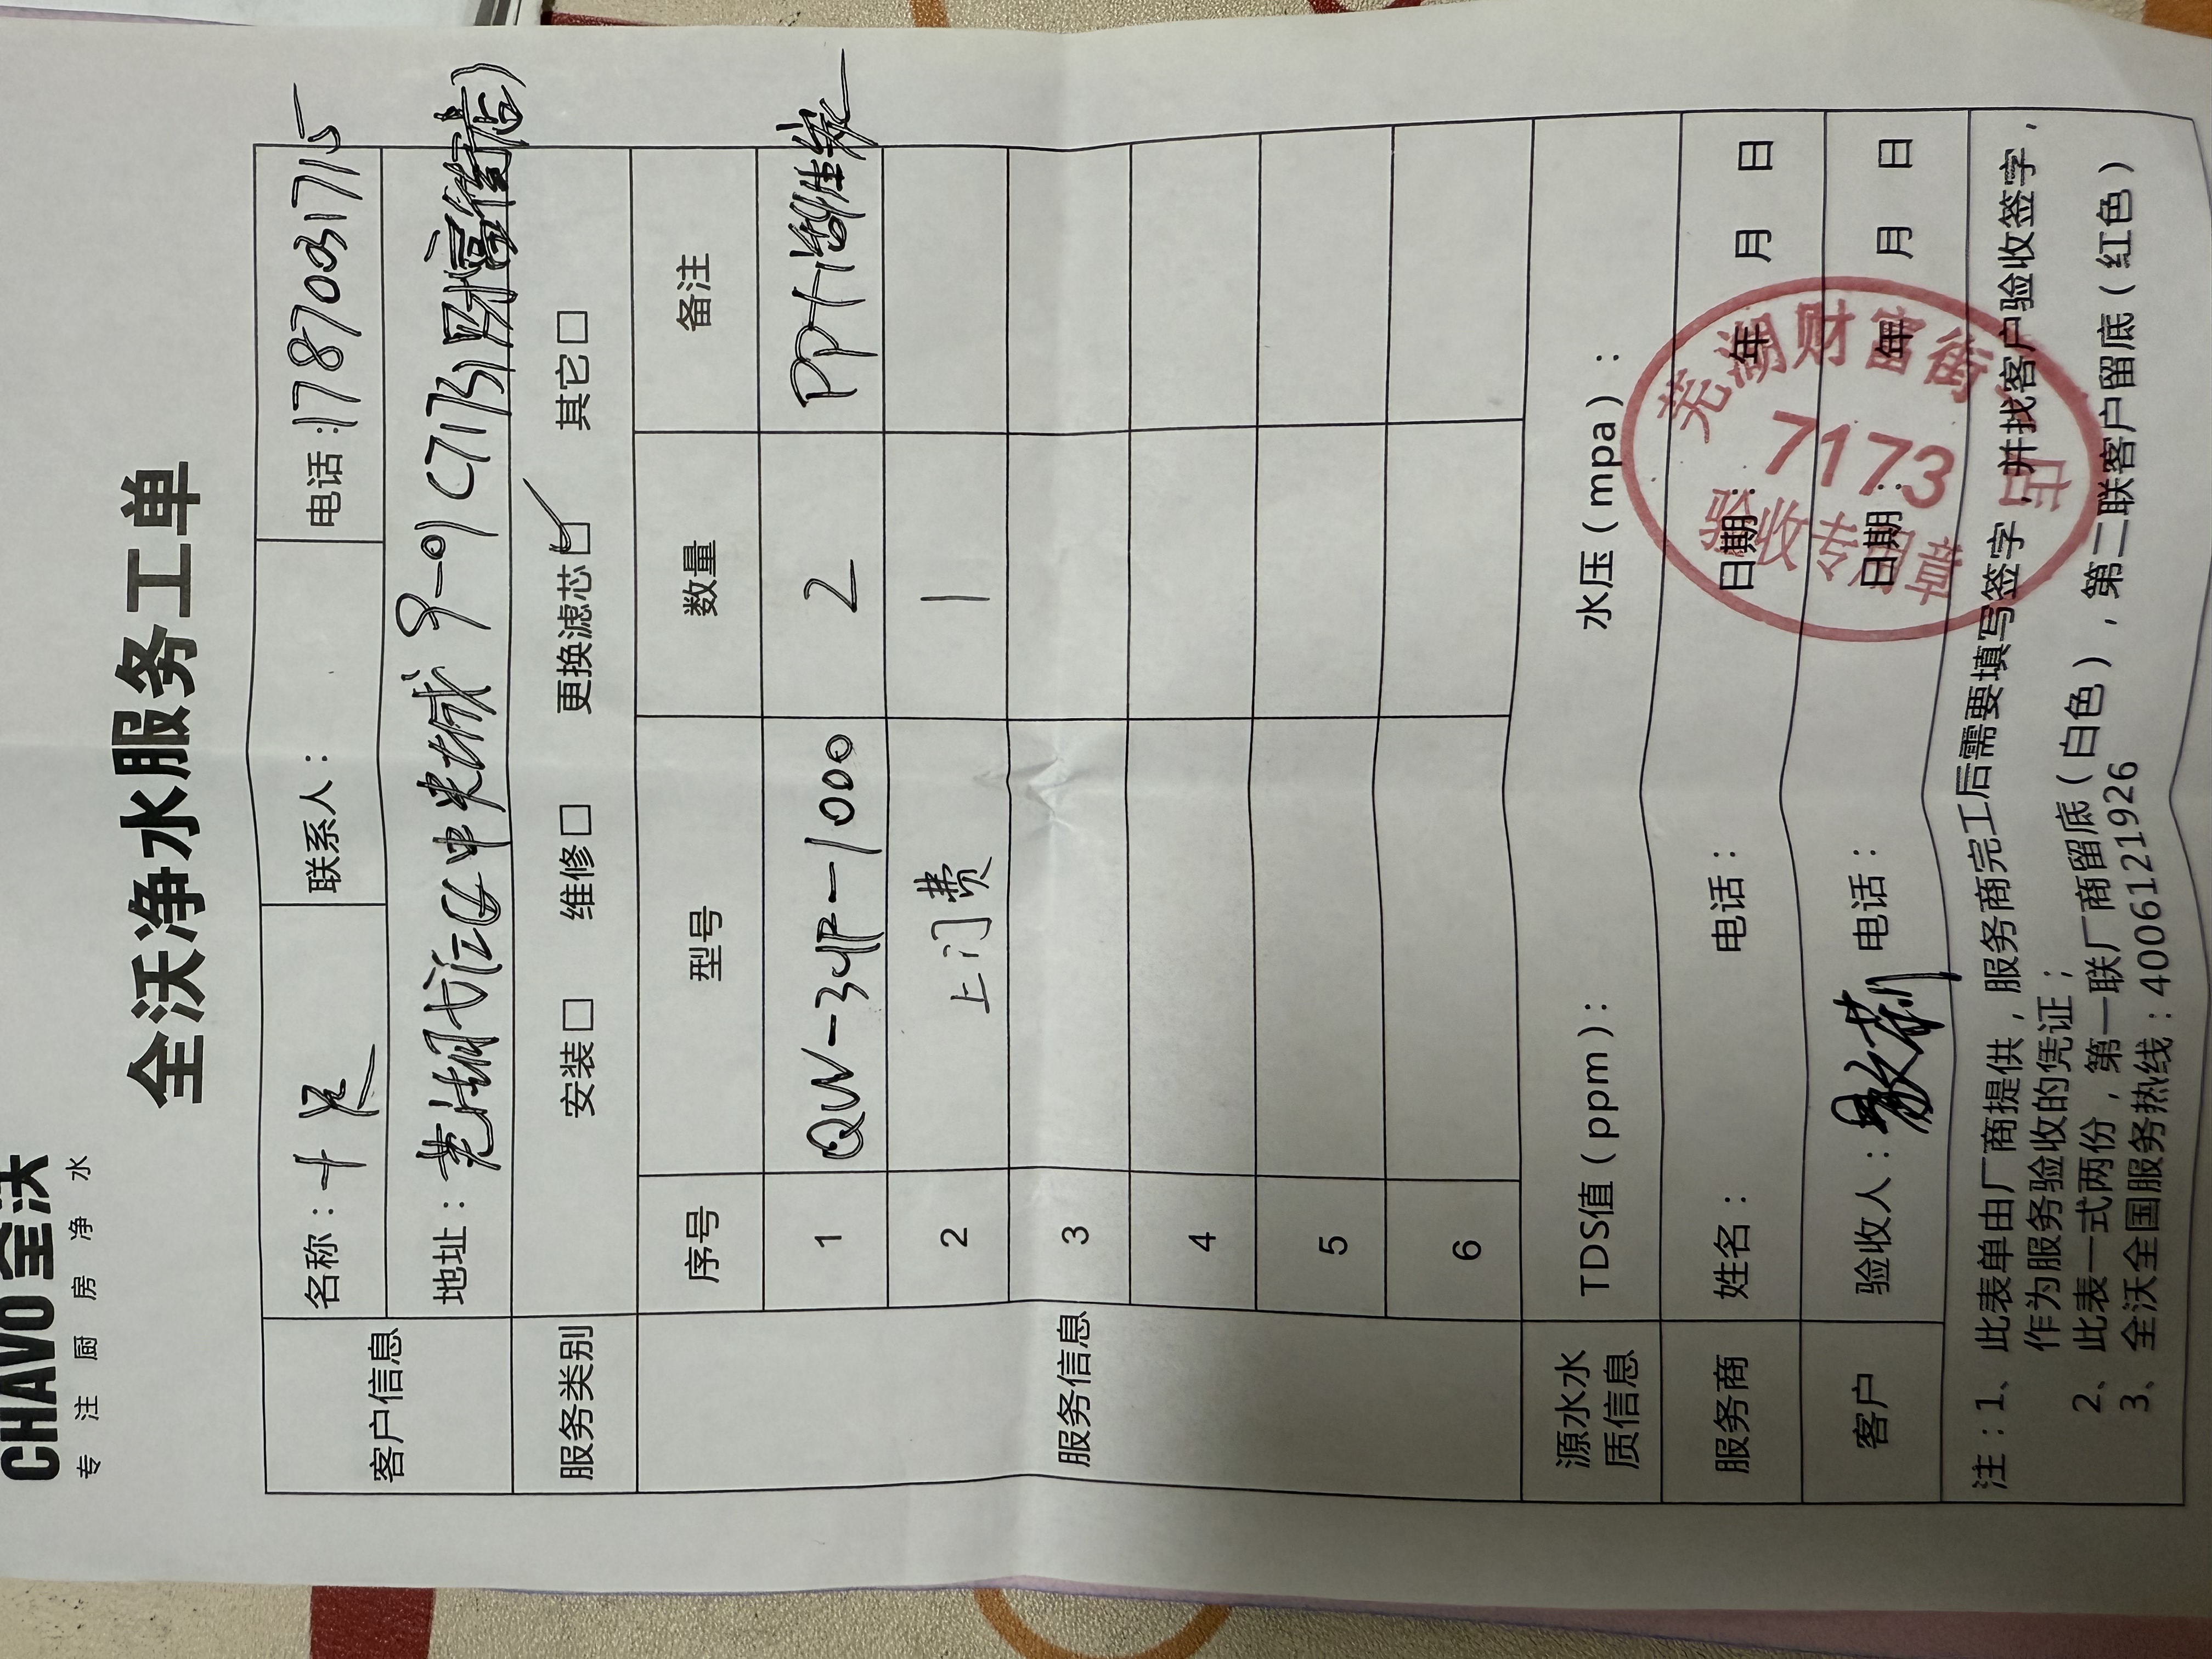 CHAVO 全沃
专注厨房净水
全沃净水服务工单
客户信息 名称：十足 联系人： 电话：17870317715
地址：芜湖长江中央城9-01 (7173财富街店)
服务类别 安装□ 维修□ 更换滤芯☑ 其它□
服务信息 序号 型号 数量 备注
1 QW-34P-1000 2 PP+
2 上门费 1
3
4
5
6
源水水质信息 TDS值（ppm）： 水压（mpa）：
服务商 姓名： 电话： 日期： 年 月 日
客户 验收人： 电话： 日期： 年 月 日
芜湖财富街店
7173
验收专用章
注：1、此表单由厂商提供，服务商完工后需要填写签字，并找客户验收签字，
作为服务验收的凭证；
2、此表一式两份，第一联厂商留底（白色），第二联客户留底（红色）
3、全沃全国服务热线：4006121926